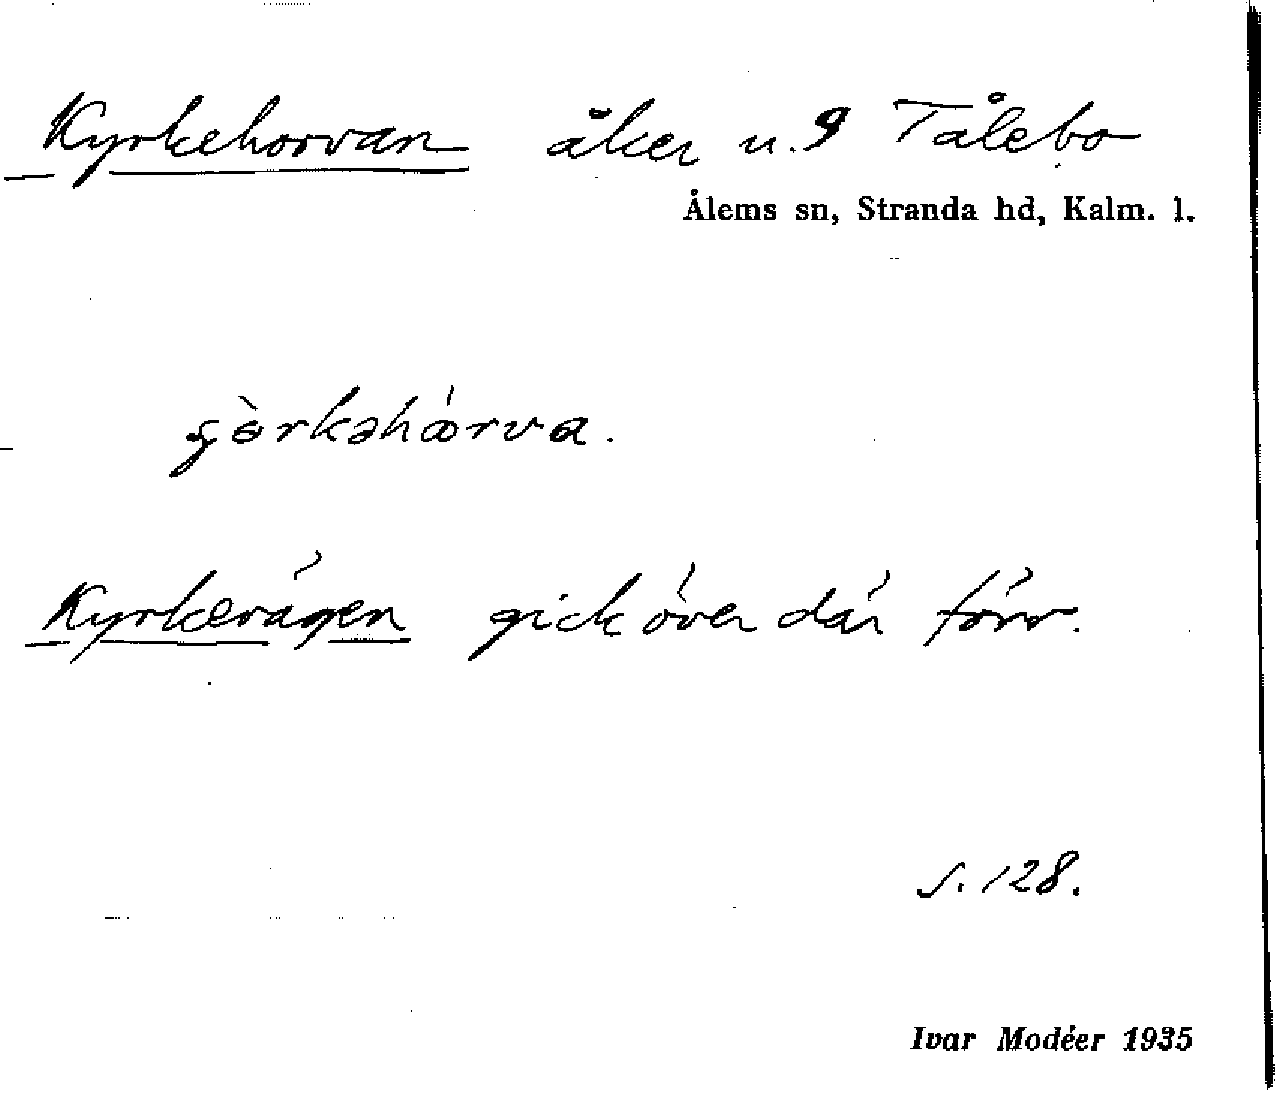 Kyrkehorvan åker u. 9 Tålebo
Ålems sn, Stranda hd, Kalm. l.
Kyrkevägen gick över där förr.
s. 128.
Ivar Modéer 1935